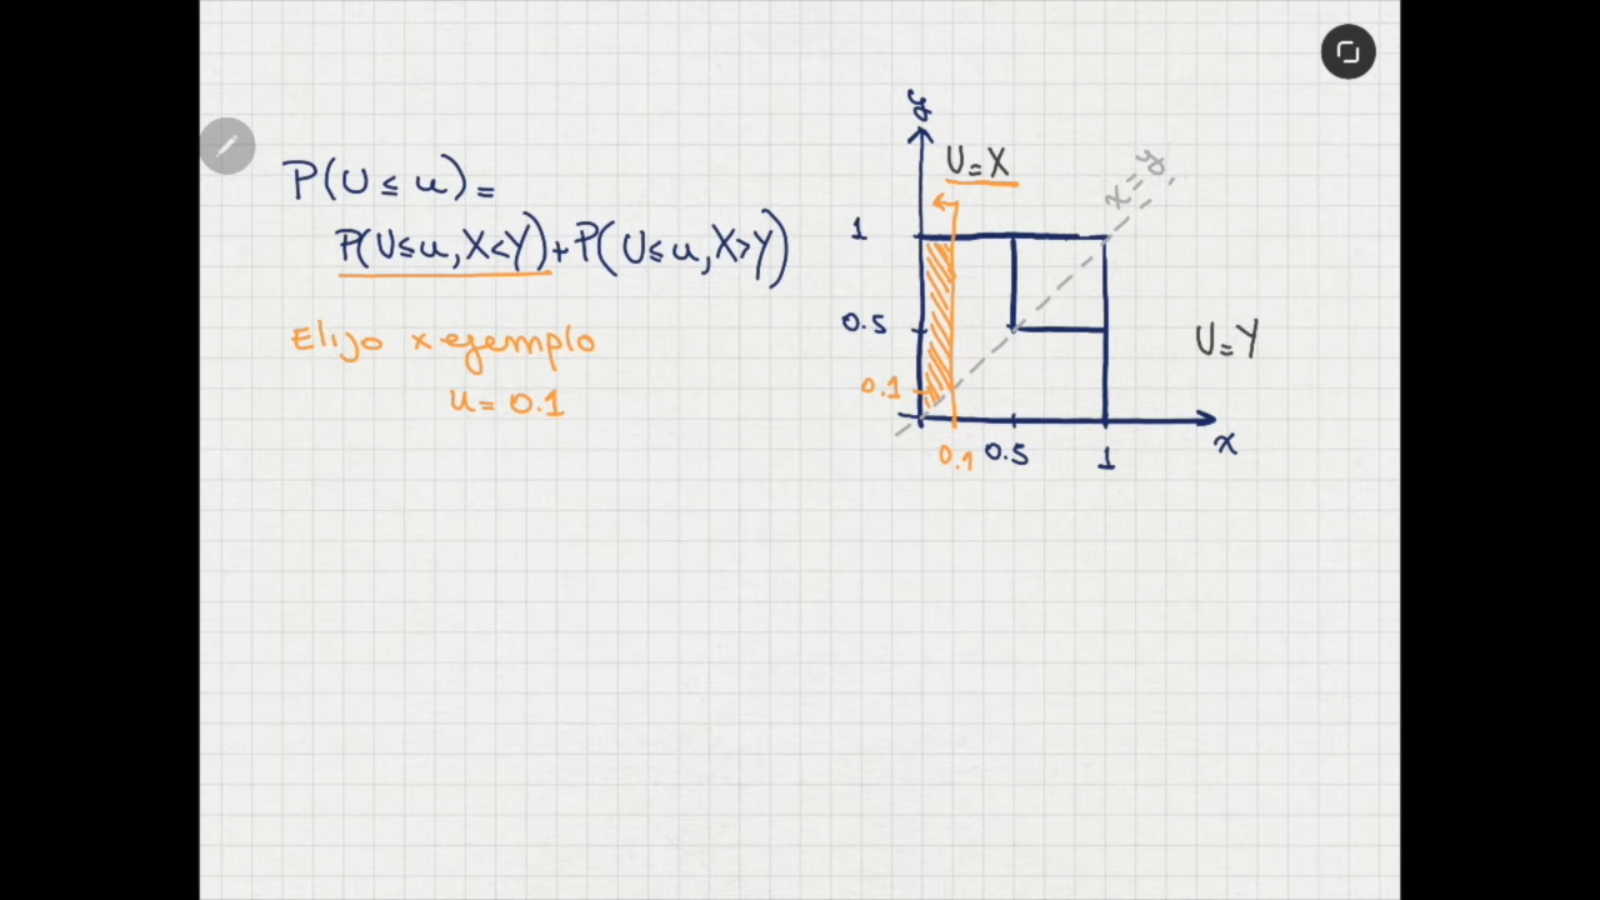 P(U ≤ u) =
P(U≤u, X<Y) + P(U≤u, X>Y)
Elijo x ejemplo
u = 0.1
y
U=X
x=y
1
0.5
U=Y
0.1
0.1 0.5 1
x